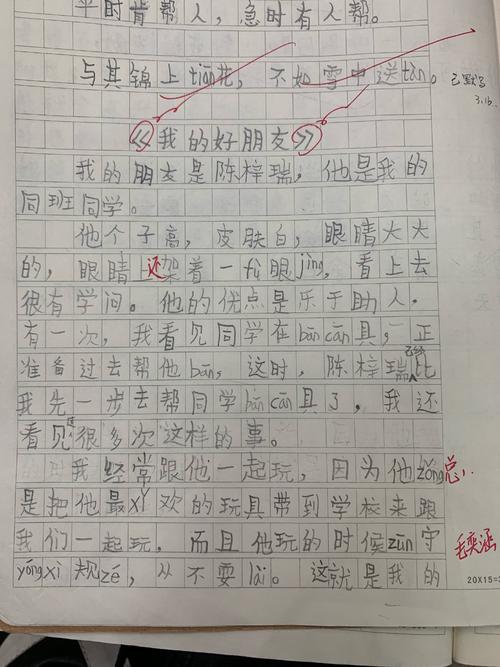 平时肯帮人，急时有人帮。
与其锦上tiān花，不如雪中送tàn。
已默写
3.16.
《我的好朋友》
我的朋友是陈梓瑞，他是我的
同班同学。
他个子高，皮肤白，眼睛大大
的，眼睛上还架着一fù眼jìng，看上去
很有学问。他的优点是乐于助人，
有一次，我看见同学在bān cān具，正
准备过去帮他bān，这时，陈梓瑞已经比
我先一步去帮同学bān cān具了，我还
看见过很多次这样的事。
我经常跟他一起玩，因为他zǒng总
是把他最xǐ欢的玩具带到学校来跟
我们一起玩，而且他玩的时候zūn守
yóng xì规zé，从不耍lài。这就是我的
毛奕涵
20X15=